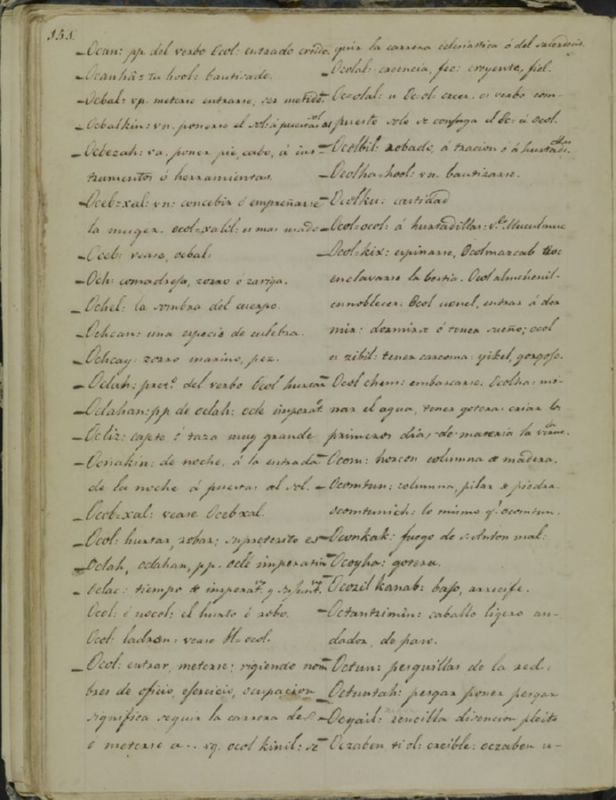 151.
Ocan: pp del verbo Ocol: entrado
Ocanhaɔ tu hool: bautizado.
Ocbal: vn. meterse entrarse, ser metido.
Ocbalkin: vn. ponerse el sol: á puestas
sol
Ocbezah: va. poner pie, cabo, á ins-
trumentos ó herramientas.
Oceb=xal: vn: concebir ó empreñarse
la muger. ocol=xalil: es mas usado
Oceb: vease, ocbal:
Och: comadreja, zorro ó zariga.
Ochel: la sombra del cuerpo.
Ochcan: una especie de culebra.
Ochcay: zorro marino, pez.
Oclah: pret.º del verbo Ocol hurtar
Oclahan: pp de oclah: ocle imperat.
Ocliz: capte ó taza muy grande
Ocnakin: de noche, á la entrada
de la noche á puestas del sol.
Ocob=xal: vease Oceb=xal.
Ocol: hurtar, robar; su preterito es
Oclah, oclahan, pp. ocle imperativo
Oclac: tiempo de imperat. y
Ocol ó nocol: el hurto ó robo.
Ocol: ladron: vease Ah=ocol.
Ocol: entrar, meterse; rigiendo nom
bres de oficio, ejercicio, ocupacion
significa seguir la carrera de
ó meterse a.. vg. ocol kinil: se
guir la carrera eclesiastica ó del sacerdocio.
Ocolal: creencia, fee: creyente, fiel.
Ocolal: u Oc=ol: creer. es verbo com-
puesto solo se conjuga el Oc: ú ocol.
Ocolbil: robado, á traicion ó á hurtadi.
llas
Ocolha=hool: vn. bautizarse.
Ocolku: castidad
Ocol=ocol: á hurtadillas: v.
Ocol=kix: espinarse, Ocolmazcab
enclavarse la bestia. Ocol almehenil-
ennoblecer: Ocol uenel, entrar á dor
mir: dormirse ó tener sueño; ocol
tener carcoma: yikel, gorgojo.
Ocol chem: embarcarse. Ocolha: mo-
nar el agua, tener gotera: criar los
primeros dias, de materia la
Ocom: horcon columna de madera.
Ocomtun: columna, pilar de piedra.
ocomtunich: lo mismo q.e ocomtun.
Oconkak: fuego de S. Anton mal:
Ocoyha: gotera.
Ocozil kanab: bajo, arrecife.
Octantzimin: caballo ligero an-
dador, de paso.
Octun: pesguillas de la red.
Octuntah: pesgar poner pesgas
Ocyail: rencilla disencion pleito
Oczaben ti ol: creible: oczaben u-